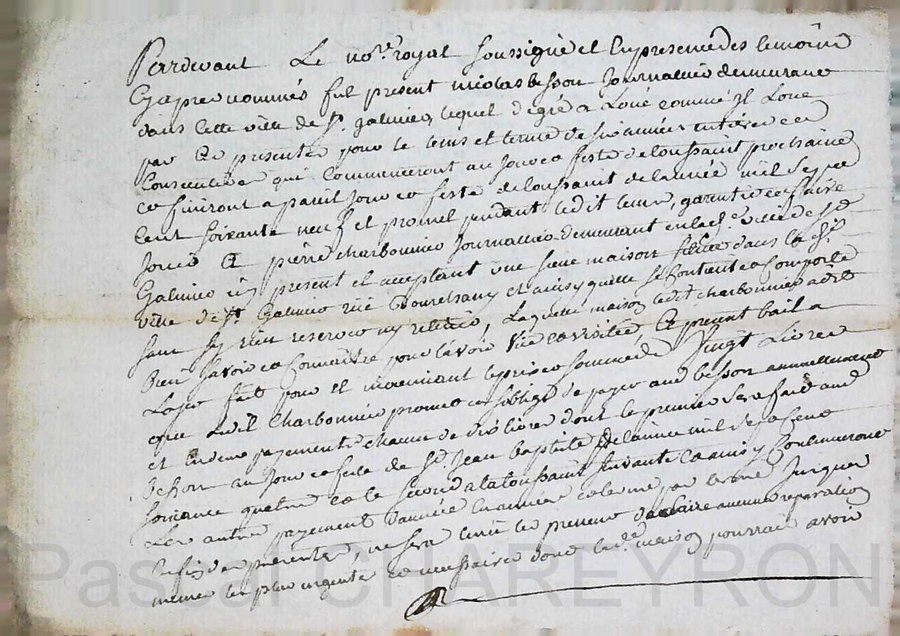 Pardevant Le no.re royal soussigné et En presence des temoins
Cy apres nommés fut present nicolas besson Journallier demeurant
dans cette ville de St galmier, lequel de gré a Loüé comme Il Loue
par Ces presentes pour le tems et terme de six années entieres et
Consecutives qui Commenceront au Jour et feste de toussaint prochaine
et finiront a pareil Jour et feste de toussaint de lannée mil sept
Cent soixante neuf et promet pendant ledit tems, garentir et faire
Jouir A pierre charbonnier Journallier demeurant en lad.e ville de St
Galmier Cy present et acceptant une sienne maison scituée dans lad.
ville de St Galmier rüe et ainsy quelle se Contient et Comporte
sans sy rien reserver ny retenir, Laquelle maison ledit charbonnier a dit
bien sçavoir et Connoitre pour lavoir Vüe et visitée, Ce present bail a
Loyer fait pour et moyennant le prix et somme de Vingt Livres
que ledit Charbonnier promet et soblige de payer aud besson annuellement
et en deux payements chacun de dix livres dont le premier sera fait aud
besson au Jour et feste de St Jean baptiste de lannée mil sept cent
soixante quatre et le second a la toussaint suivante et ainsy Continueront
Les autres payements dannée En année et terme par terme Jusques
a fin des presentes, ne sera tenu le preneur de faire aucune reparation
meme les plus urgente et necessaire dont lad.e maison pourrait avoir
Pascal CHAREYRON